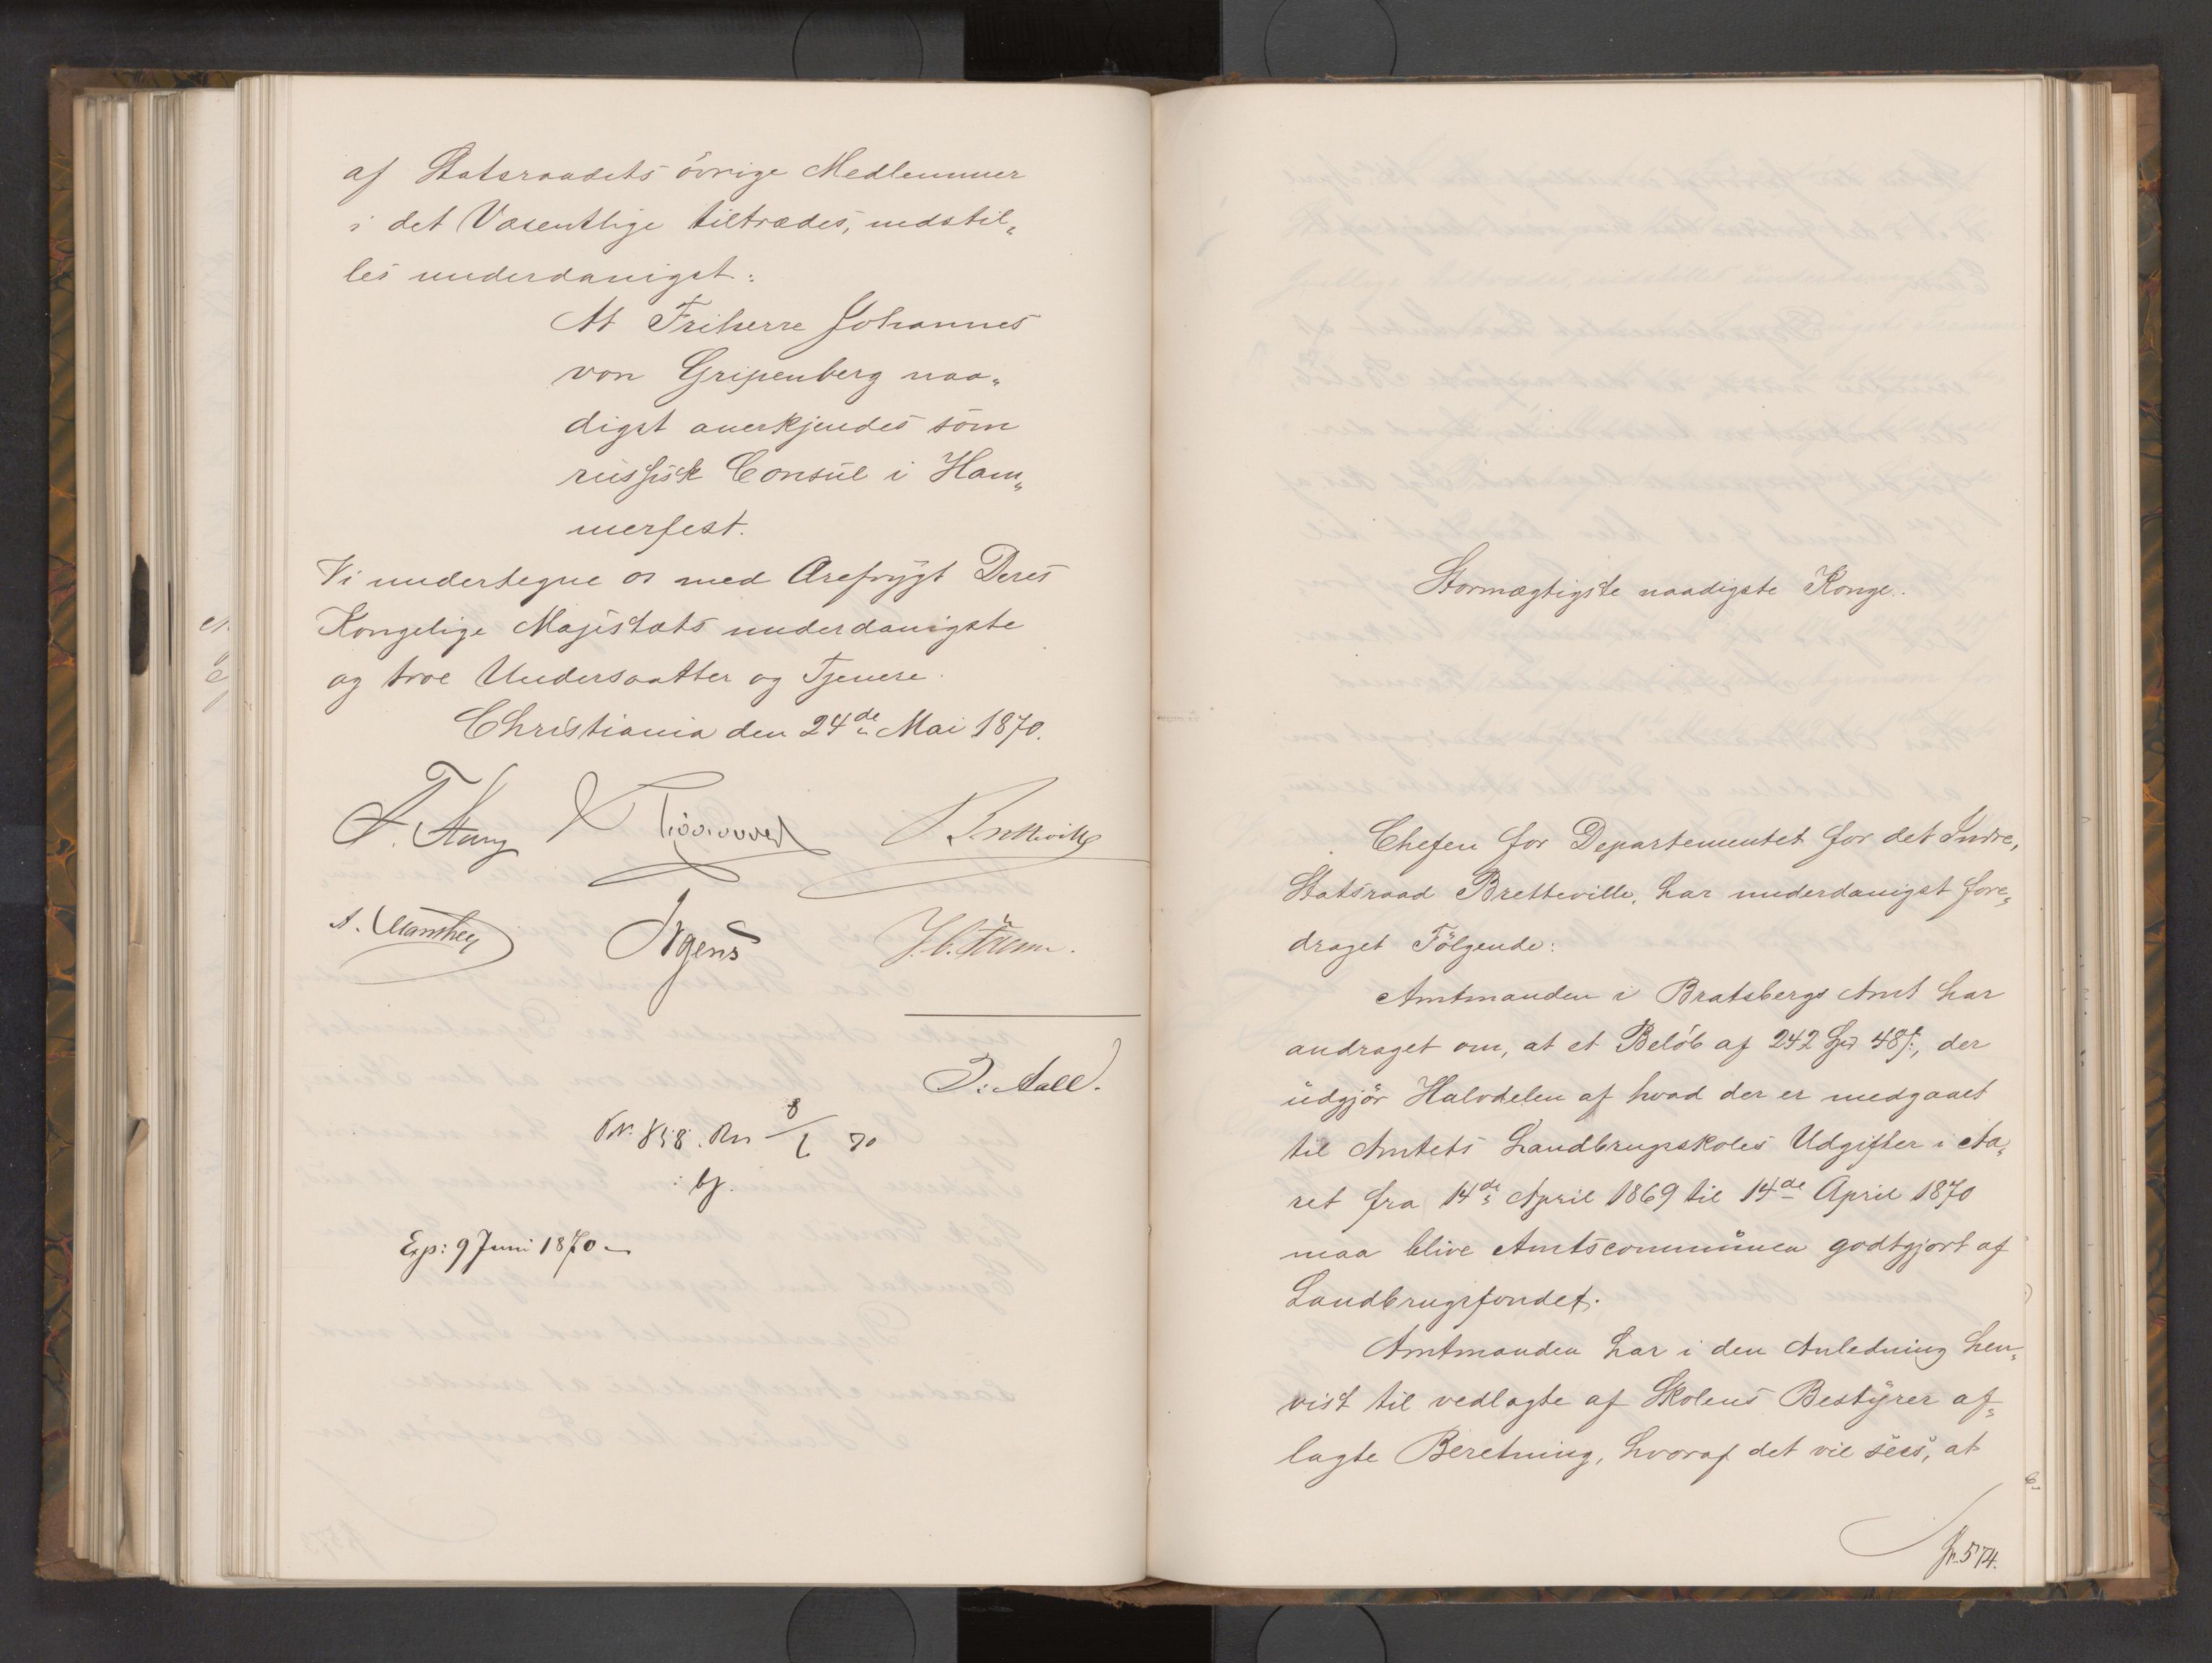 af Statsraadets övrige Medlemmer
i det Væsentlige tiltrædes, indstil„
les underdanigst:
At Friherre Johannes
von Gripenberg naa„
digst anerkjendes som
russisk Consul i Ham„
merfest.
Vi undertegne os med Ærefrygt Deres
Kongelige Majestæts underdanigste
og troe Undersaatter og Tjenere.
Christiania den 24de Mai 1870.
F. Stang
Bretteville
A. Manthey Irgens
J. Aall.
858
70
Exp: 9 Juni 1870
Stormægtigste naadigste Konge.
Chefen for Departementet for det Indre,
Statsraad Bretteville, har underdanigst fore„
draget Følgende:
Amtmanden i Bratsbergs Amt har
andraget om, at et Beløb af 242 Spd 48 s:, der
udgjør Halvdelen af hvad der er medgaaet
til Amtets Landbrugsskoles Udgifter i Aa„
ret fra 14de April 1869 til 14de April 1870
maa blive Amtscommunen godtgjort af
Landbrugsfondet.
Amtmanden har i den Anledning hen„
vist til vedlagte af Skolens Bestyrer af„
lagte Beretning, hvoraf det vil sees, at
574.